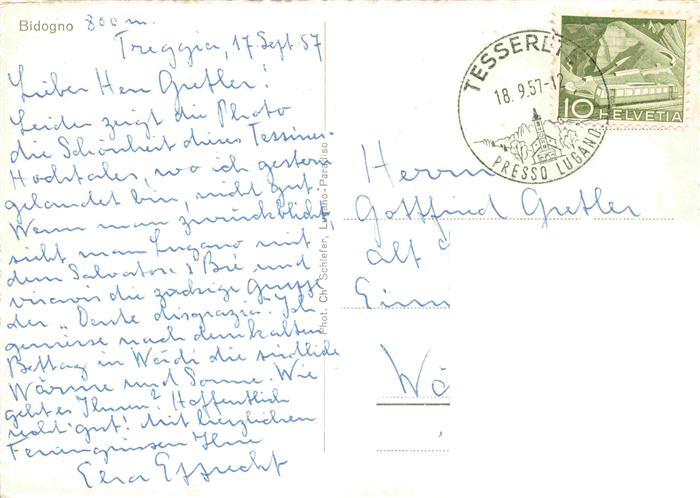 Bidogno 800 m.
Treggia, 17 Sept 57
Lieber Herr Gretler!
Leider zeigt die Photo
die Schönheit dieses Tessiner-
Hochtales, wo ich gestern
gelandet bin, nicht gut.
Wenn man zurückblickt,
sieht man Lugano mit
dem Salvatore & Bré und
visavis die zackige Gruppe
der „Dente disgrazia". Ich
geniesse nach dem kalten
Bettag in Wädi die südliche
Wärme und Sonne. Wie
geht es Ihnen? Hoffentlich
recht gut! Mit herzlichen
Feriengrüssen Ihre
Elsa
Phot. Ch. Schiefer, Lugano-Paradiso
TESSERETE
18.9.57-12
PRESSO LUGANO
10 HELVETIA
Herrn
Gottfried Gretler
alt
Wä